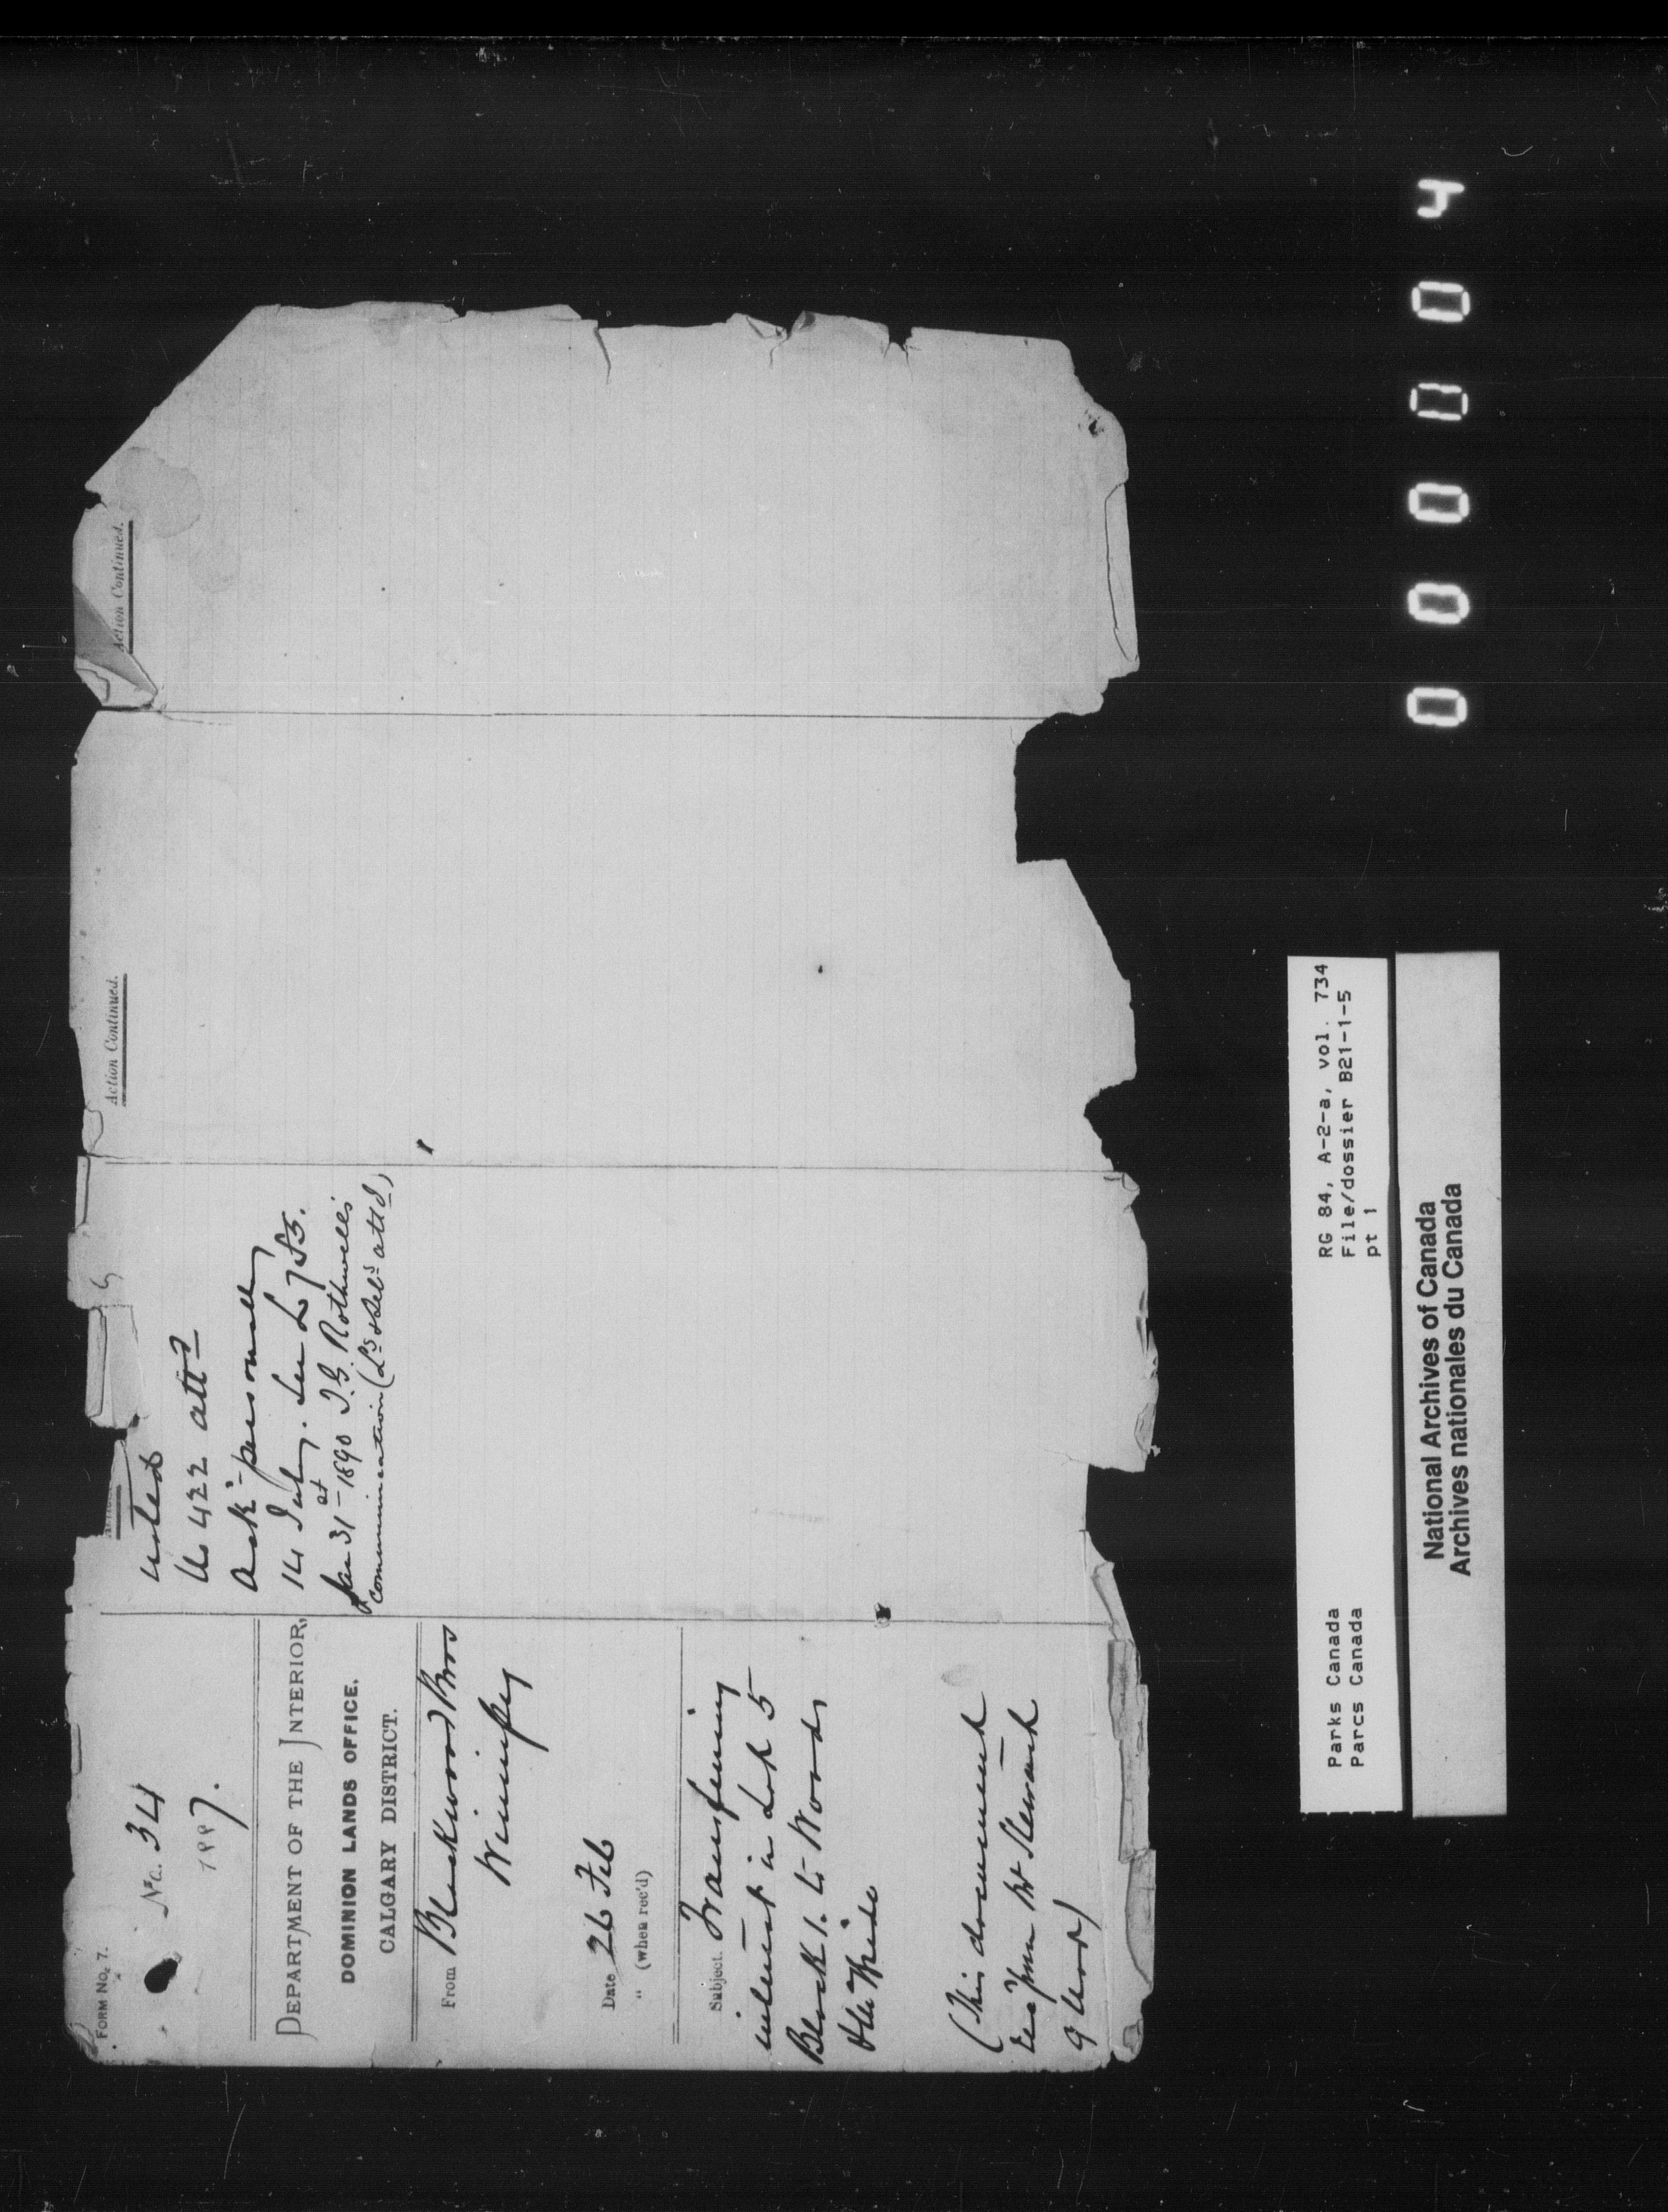 FORM No. 7.
No. 34
1887.
DEPARTMENT OF THE INTERIOR,
DOMINION LANDS OFFICE,
CALGARY DISTRICT.
From Blackwood Bros
Winnipeg
Date 26 Feb
" (when rec'd)
Subject. Transferring
interest in Lot 5
Block 1. to Woods
(This document
rec'd from Mr Stewart
9 Nov)
noted
422 attd
Ack'd personally
14 July. See L 785.
Jan 31st 1890 T.G. Rothwell's
communication (Ls & Dels attd)
Action Continued.
Action Continued.
Parks Canada
Parcs Canada
RG 84, A-2-a, vol. 734
File/dossier B21-1-5
pt 1
National Archives of Canada
Archives nationales du Canada